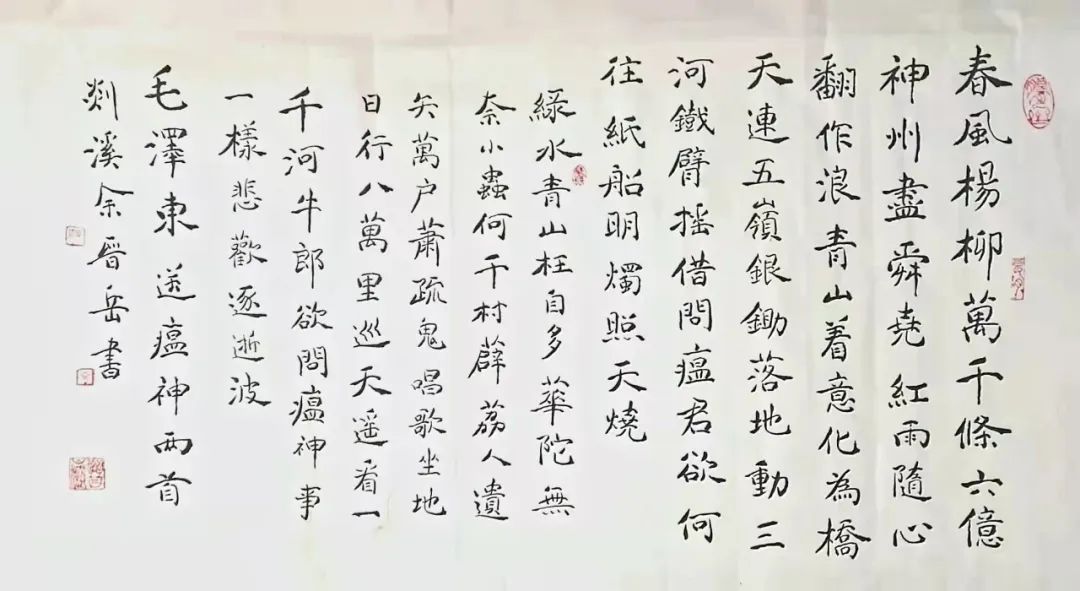 春風楊柳萬千條六億
神州盡舜堯紅雨隨心
翻作浪青山着意化為橋
天連五嶺銀鋤落地動三
河鐵臂搖借問瘟君欲何
往紙船明燭照天燒
綠水青山枉自多華陀無
奈小蟲何千村薜荔人遺
矢萬户蕭疏鬼唱歌坐地
日行八萬里巡天遥看一
千河牛郎欲問瘟神事
一樣悲歡逐逝波
毛澤東送瘟神两首
剡溪余晉岳書